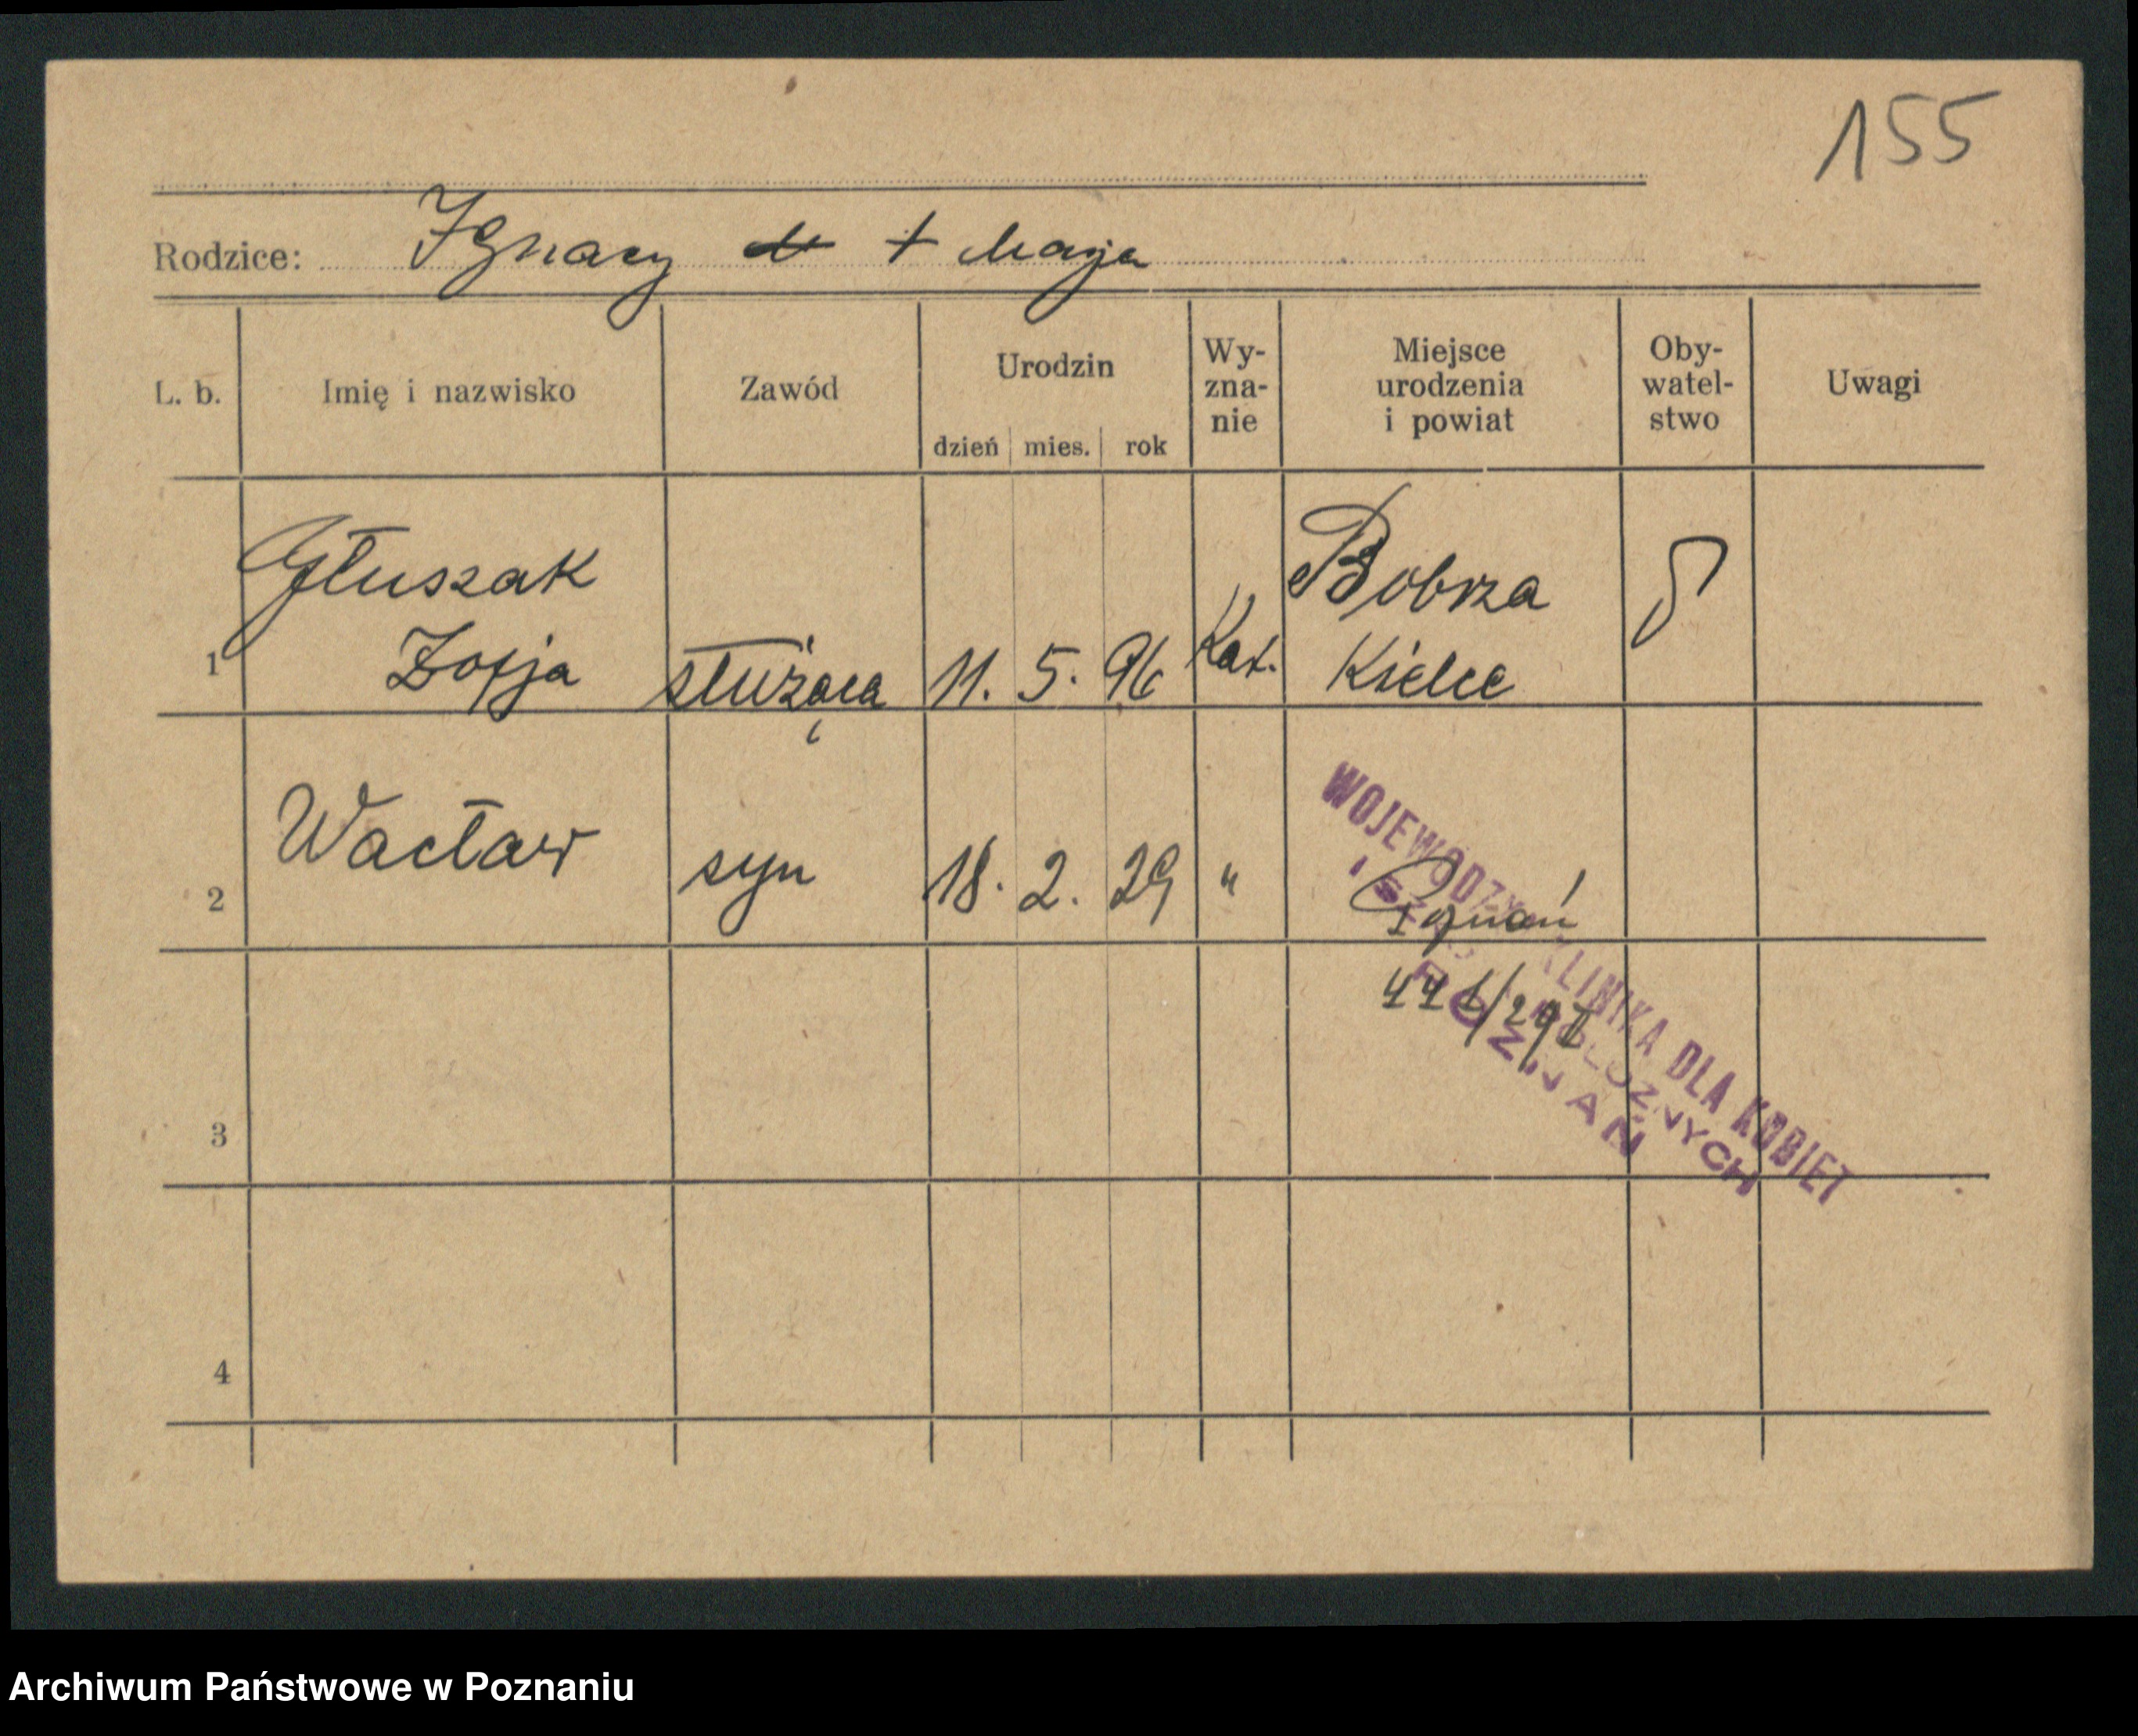 155
Rodzice: Ignacy + Marja
L. b. Imię i nazwisko Zawód Urodzin dzień mies. rok Wy-zna-nie Miejsce urodzenia i powiat Oby-watel-stwo Uwagi
Głuszak Bobrza
1 Zofja służąca 11. 5. 96 Kat. Kielce
2 Wacław syn 18. 2. 29 " Poznań
WOJEWÓDZKA KLINIKA DLA KOBIET
POZNAŃ
3
4
Archiwum Państwowe w Poznaniu